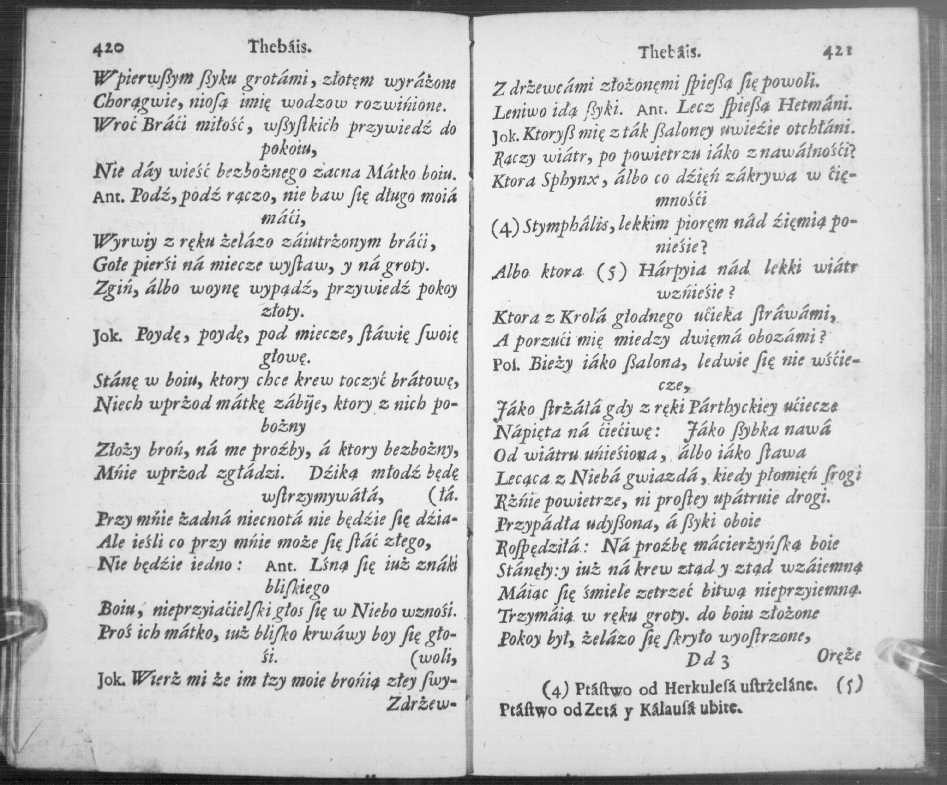 420 Thebáis.
W pierwßym ßyku grotámi, złotęm wyráżone
Chorągwie, nioſą imię wodzow rozwińione.
Wroć Bráći miłość, wſßyſtkich przywiedź do
pokoiu,
Nie dáy wieść bezbożnego zacna Mátko boiu.
Ant. Podź, podź rączo, nie baw ſię długo moiá
máći,
Wyrwiy z ręku żelázo záiutrżonym bráći,
Gołe pierśi ná miecze wyſtaw, y ná groty.
Zgiń, álbo woynę wypądź, przywiedź pokoy
złoty.
Jok. Poydę, poydę, pod miecze, ſtáwię ſwoię
głowę.
Stánę w boiu, ktory chce krew toczyć brátowę,
Niech wprżod mátkę zábije, ktory z nich po-
bożny
Złoży broń, ná me proźby, á ktory bezbożny,
Mńie wprżod zgłádzi. Dźiką młodź będę
wſtrzymywáłá, (łá.
Przy mńie żadná niecnotá nie będźie ſię dźia-
Ale ieśli co przy mńie może ſię ſtáć złego,
Nie będźie iedno: Ant. Lśną ſię iuż znáki
bliſkiego
Boiu, nieprzyiaćielſki głos ſię w Niebo wznośi.
Proś ich mátko, iuż bliſko krwáwy boy ſię gło-
śi. (woli,
Jok. Wierż mi że im łzy moie brońią złey ſwy-
Zdrżew-
Thebáis. 421
Z drżewcámi złożonęmi ſpießą ſię powoli.
Leniwo idą ßyki. Ant. Lecz ſpießą Hetmáni.
Jok. Ktoryß mię z ták ßaloney uwieźie otchłáni.
Rączy wiátr, po powietrzu iáko z nawáłnośći?
Ktora Sphynx, álbo co dźięń zákrywa w ćię-
mnośći
(4) Stymphális, lekkim pioręm nád źięmią po-
nieśie?
Albo ktora (5) Hárpyia nád lekki wiátr
wzńieśie?
Ktora z Krolá głodnego ućieka ſtráwámi,
A porzući mię miedzy dwięmá obozámi?
Poſ. Bieży iáko ßalona, ledwie ſię nie wśćie-
cze,
Jáko ſtrżáłá gdy z ręki Párthyckiey ućiecze
Nápięta ná ćiećiwę: Jáko ßybka nawá
Od wiátru uńieśiona, álbo iáko ſtawa
Lecąca z Niebá gwiazdá, kiedy płomięń ſrogi
Rżńie powietrze, ni proſtey upátruie drogi.
Przypádła udyßona, á ßyki oboie
Roſpędźiłá: Ná proźbę máćierżyńſką boie
Stánęły: y iuż ná krew ztąd y ztąd wzáiemną
Máiąc ſię śmiele zetrzeć bitwą nieprzyiemną.
Trzymáią w ręku groty. do boiu złożone
Pokoy był, żelázo ſię ſkryło wyoſtrzone,
Dd 3 Oręże
(4) Ptáſtwo od Herkuleſá uſtrżeláne. (5)
Ptáſtwo od Zetá y Káláuſá ubite.